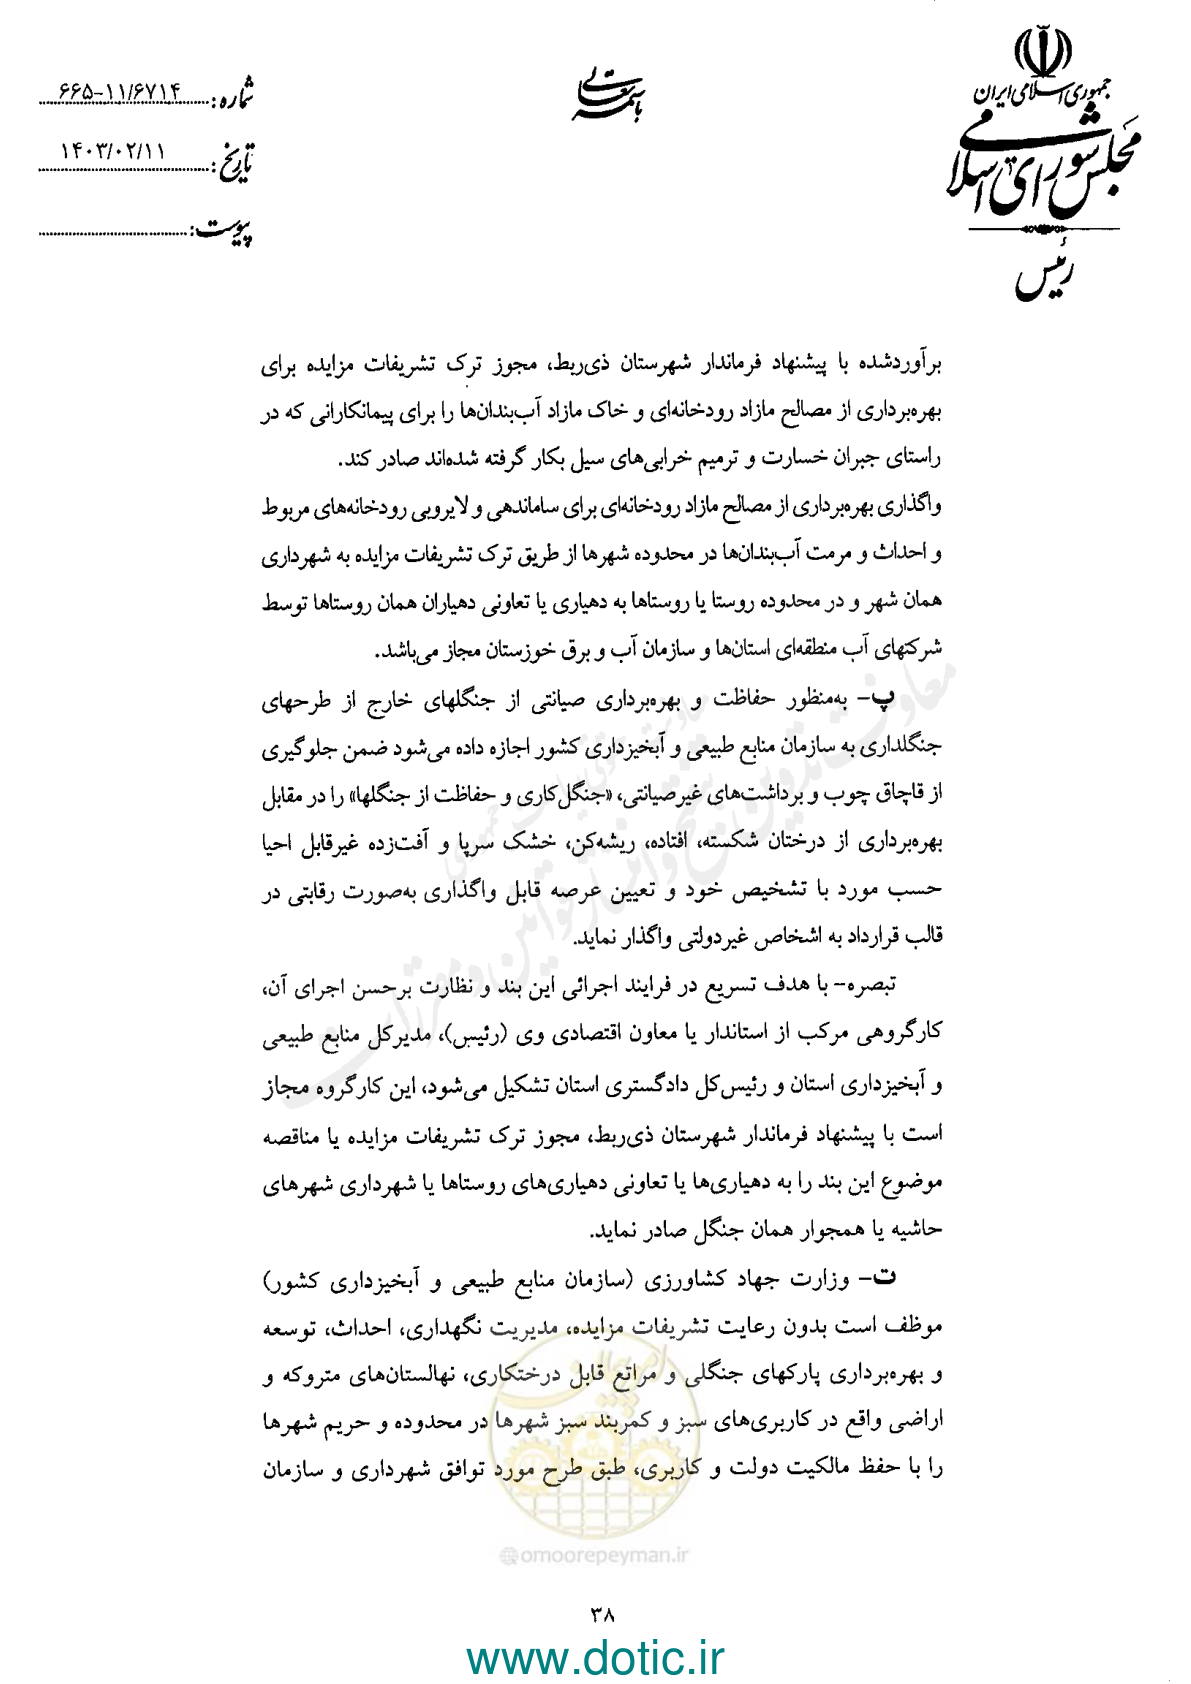 جمهوری اسلامی ایران
مجلس شورای اسلامی
رئیس
باسمه تعالی
شماره: ۶۶۵-۱۱/۶۷۱۴
تاریخ: ۱۴۰۳/۰۲/۱۱
پیوست:
برآوردشده با پیشنهاد فرماندار شهرستان ذی‌ربط، مجوز ترک تشریفات مزایده برای
بهره‌برداری از مصالح مازاد رودخانه‌ای و خاک مازاد آب‌بندان‌ها را برای پیمانکارانی که در
راستای جبران خسارت و ترمیم خرابی‌های سیل بکار گرفته شده‌اند صادر کند.
واگذاری بهره‌برداری از مصالح مازاد رودخانه‌ای برای ساماندهی و لایروبی رودخانه‌های مربوط
و احداث و مرمت آب‌بندان‌ها در محدوده شهرها از طریق ترک تشریفات مزایده به شهرداری
همان شهر و در محدوده روستا یا روستاها به دهیاری یا تعاونی دهیاران همان روستاها توسط
شرکتهای آب منطقه‌ای استان‌ها و سازمان آب و برق خوزستان مجاز می‌باشد.
پ- به‌منظور حفاظت و بهره‌برداری صیانتی از جنگلهای خارج از طرحهای
جنگلداری به سازمان منابع طبیعی و آبخیزداری کشور اجازه داده می‌شود ضمن جلوگیری
از قاچاق چوب و برداشت‌های غیرصیانتی، «جنگل‌کاری و حفاظت از جنگلها» را در مقابل
بهره‌برداری از درختان شکسته، افتاده، ریشه‌کن، خشک سرپا و آفت‌زده غیرقابل احیا
حسب مورد با تشخیص خود و تعیین عرصه قابل واگذاری به‌صورت رقابتی در
قالب قرارداد به اشخاص غیردولتی واگذار نماید.
تبصره- با هدف تسریع در فرایند اجرائی این بند و نظارت برحسن اجرای آن،
کارگروهی مرکب از استاندار یا معاون اقتصادی وی (رئیس)، مدیرکل منابع طبیعی
و آبخیزداری استان و رئیس‌کل دادگستری استان تشکیل می‌شود، این کارگروه مجاز
است با پیشنهاد فرماندار شهرستان ذی‌ربط، مجوز ترک تشریفات مزایده یا مناقصه
موضوع این بند را به دهیاری‌ها یا تعاونی دهیاری‌های روستاها یا شهرداری شهرهای
حاشیه یا همجوار همان جنگل صادر نماید.
ت- وزارت جهاد کشاورزی (سازمان منابع طبیعی و آبخیزداری کشور)
موظف است بدون رعایت تشریفات مزایده، مدیریت نگهداری، احداث، توسعه
و بهره‌برداری پارکهای جنگلی و مراتع قابل درختکاری، نهالستان‌های متروکه و
اراضی واقع در کاربری‌های سبز و کمربند سبز شهرها در محدوده و حریم شهرها
را با حفظ مالکیت دولت و کاربری، طبق طرح مورد توافق شهرداری و سازمان
@omoorepeyman.ir
۳۸
www.dotic.ir